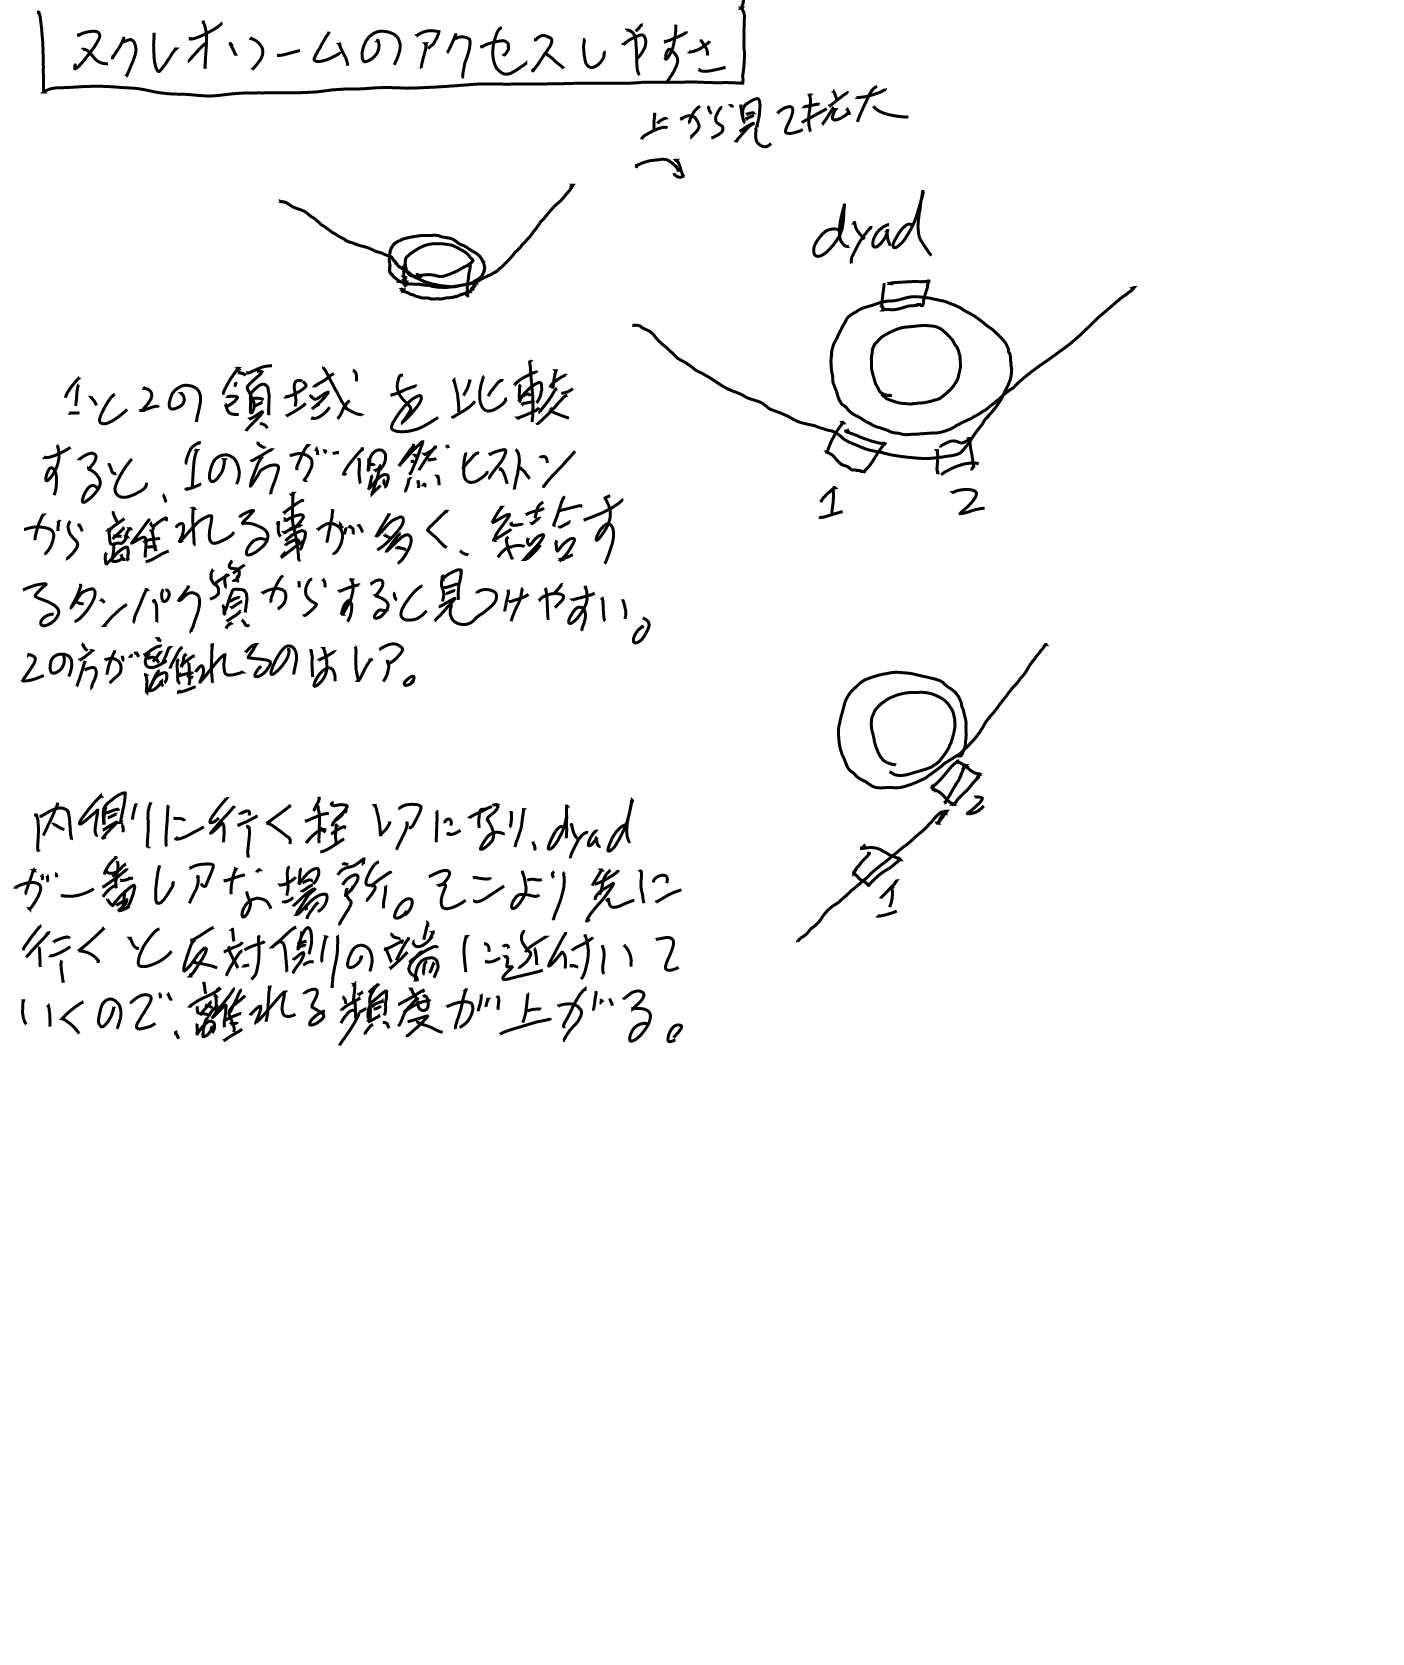 ヌクレオソームのアクセスしやすさ
上から見て拡大
dyad
1と2の領域を比較
すると、1の方が偶然ヒストン
から離れる事が多く、結合す
るタンパク質からすると見つけやすい。
2の方が離れるのはレア。
1
2
2
1
内側に行く程レアになり、dyad
が一番レアな場所。そこより先に
行くと反対側の端に近付いて
いくので、離れる頻度が上がる。